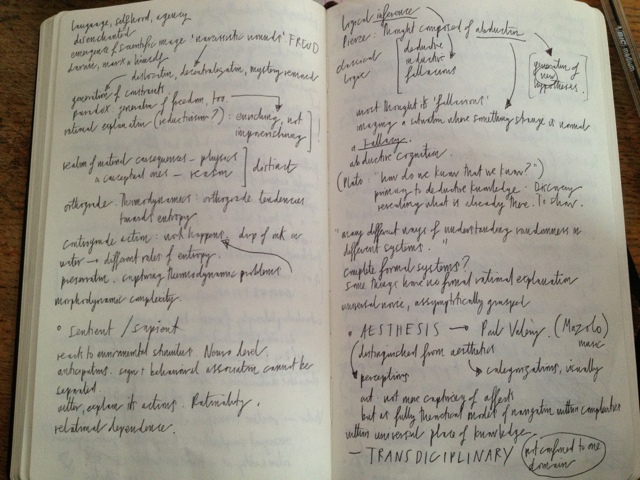 language, selfhood, agency
disenchanted
emergence of scientific image 'narcissistic wounds' FREUD
darwin, marx &
dislocation, decentralisation, mystery removed
generation of constraints
paradox generator of freedom, too.
rational explanation (reductivism?) : enriching, not
impoverishing
realm of material consequences – physics
a conceptual ones – reason
distinct
orthograde. Thermodynamics : orthograde tendencies
towards entropy
contragrade action : work happens. drop of ink in
water → different rules of entropy.
preservation. capturing thermodynamic problems
morphodynamic complexity.
° Sentient / sapient
reacts to environmental stimulus Neuro level.
anticipations. sign + behavioural association cannot be
separated.
utter, explain its actions. Rationality,
relational dependence.
logical inference
Pierce : thought composed of abduction
classical
logic
deductive
inductive
fallacious
generation of
new
hypotheses.
most thought is 'fallacious'
imaging a situation where something strange is normal
a fallacy.
abductive cognition.
(Plato : "how do we know that we know?")
primary to deductive knowledge. Discovery
revealing what is already there. To show.
"many different ways of understanding randomness in
different systems."
complete formal systems?
some things have no formal rational explanation
universal noise, assymptotically grasped
• AESTHESIS → Paul Valéry. (Mazzolo)
music
distinguished from aesthetics
perceptions
→ categorizations, visually
art : not mere captivity of affects
but as fully theoretical model of navigation within complexities
within universal place of knowledge.
— TRANSDICIPLINARY (not confined to one
domain)